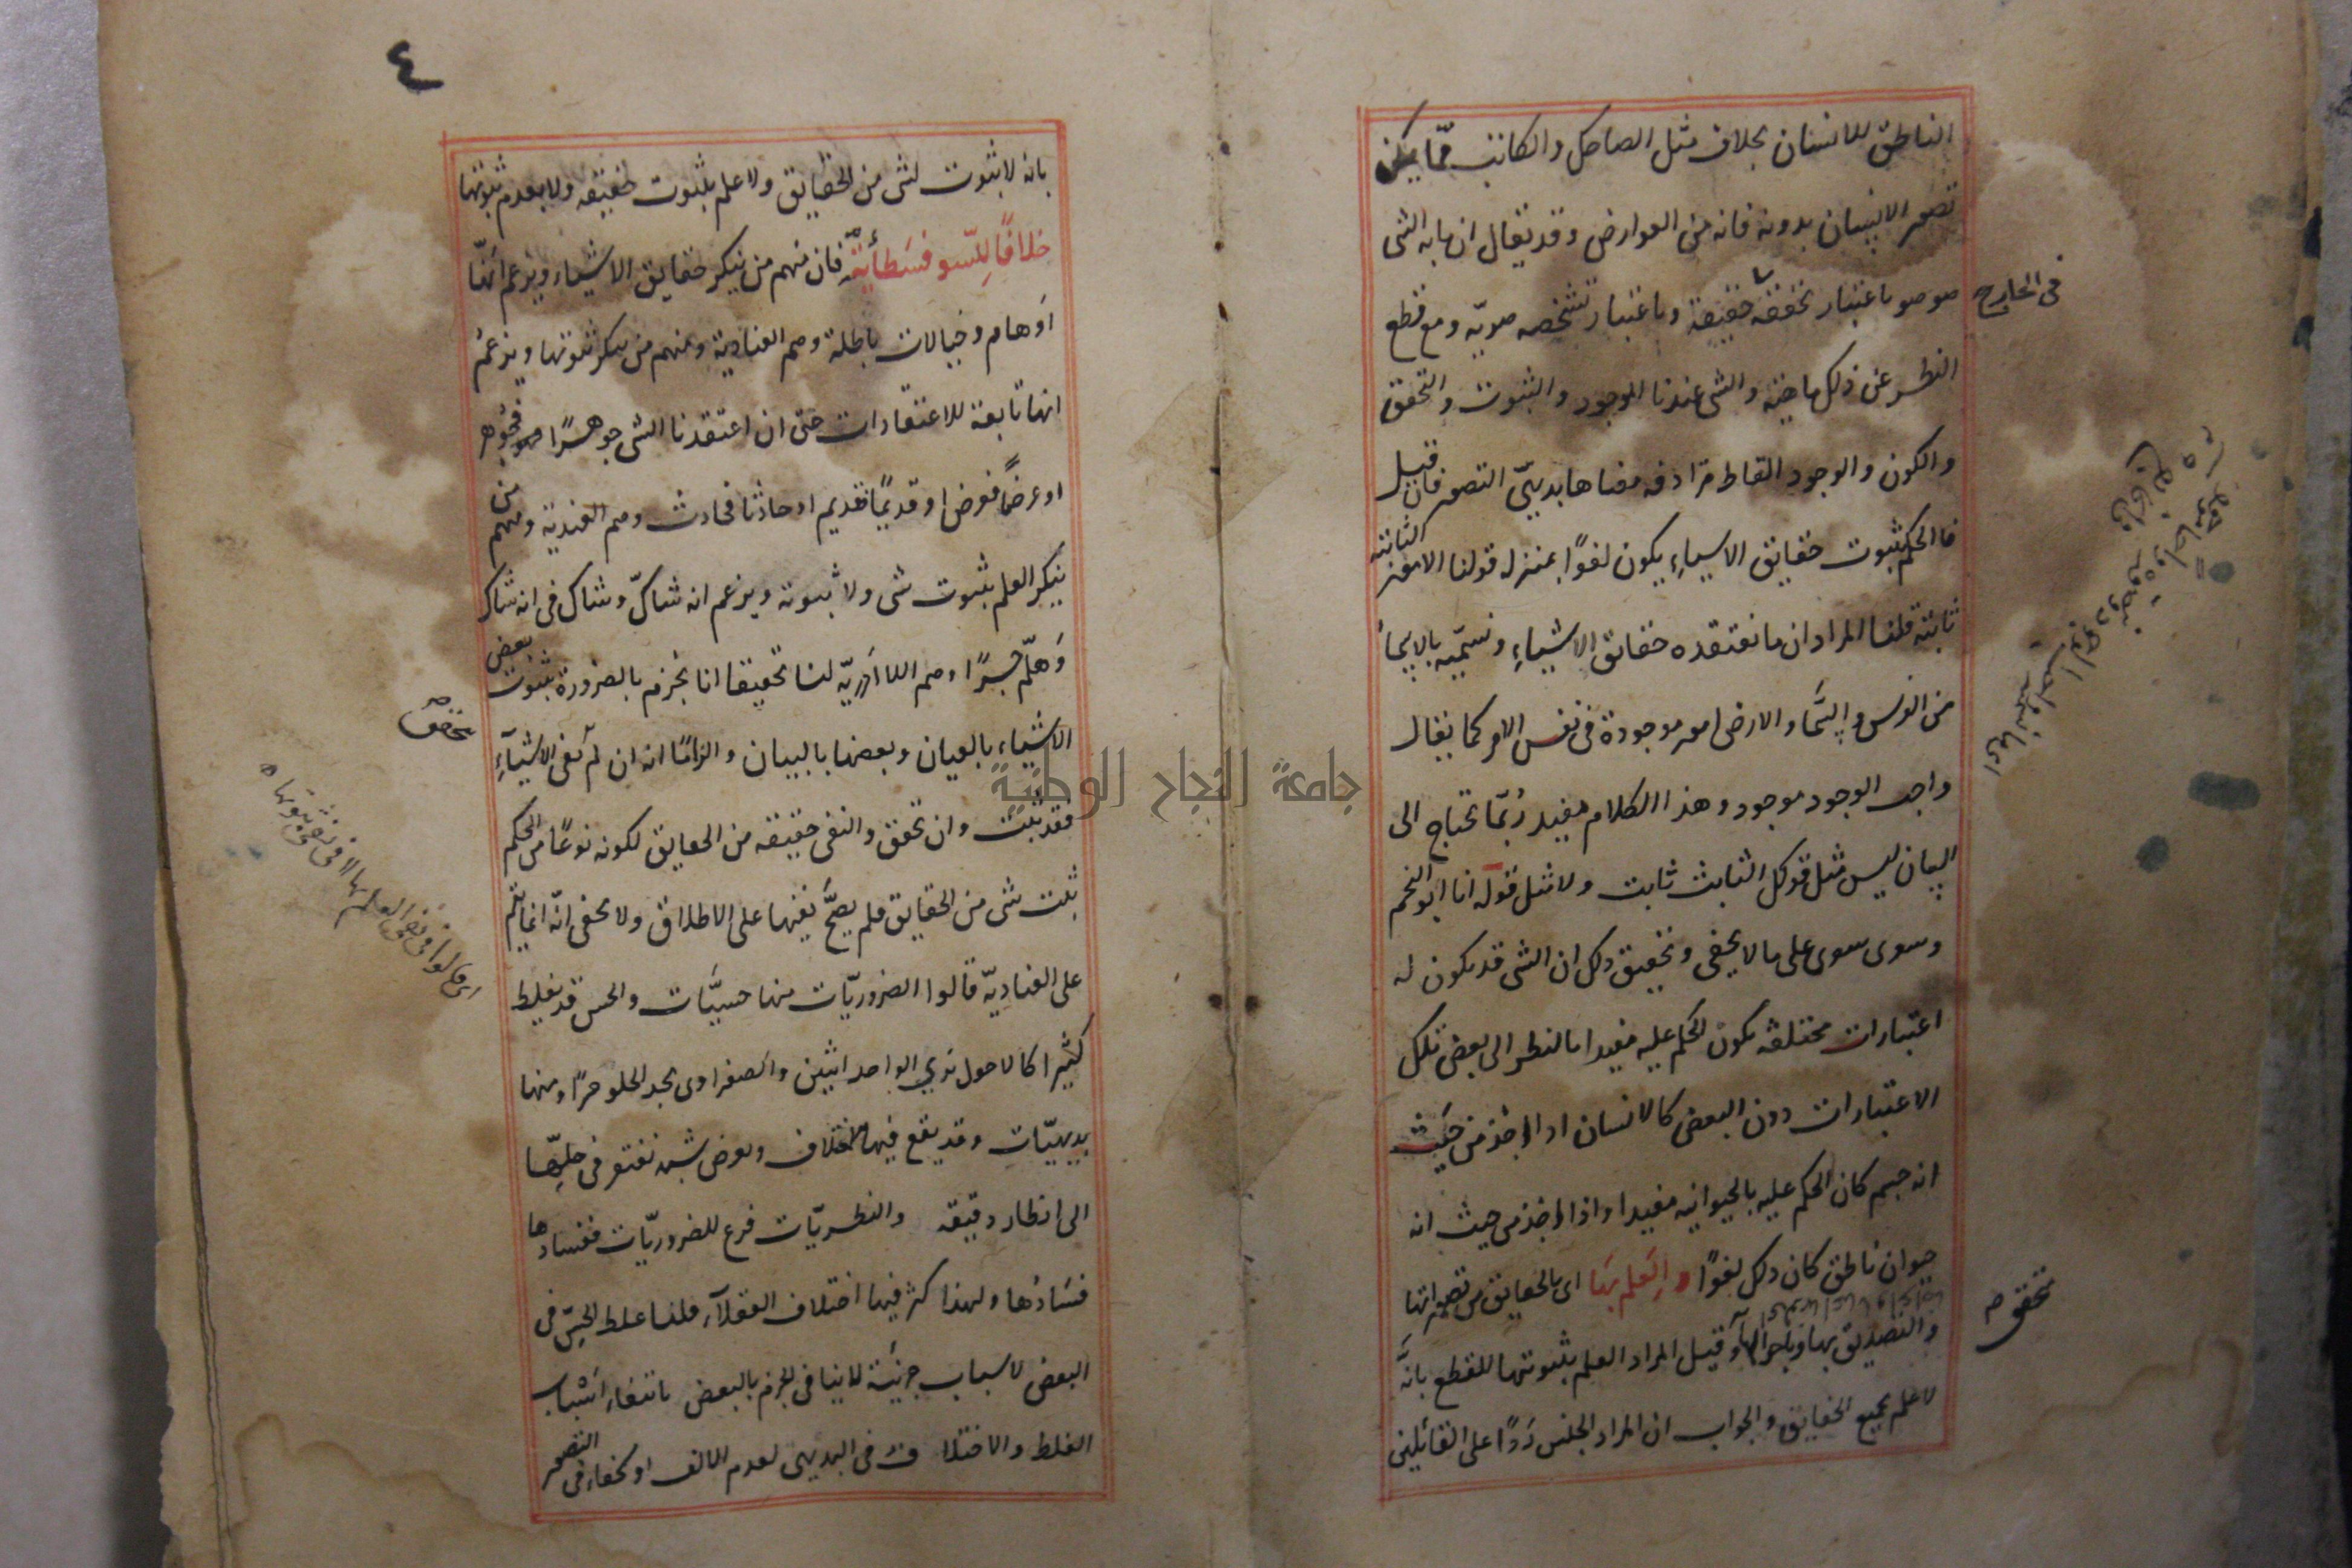 الناطق للانسان بخلاف مثل الضاحك والكاتب ممّا يمكن
تصور الانسان بدونه فانه من العوارض وقد يقال ان ما به الشى
هو هو باعتبار تحققه حقيقة وباعتبار تشخصه هويّة ومع قطع
فى الخارج
النظر عن ذلك ماهية والشى عندنا الموجود والثبوت والتحقق
والكون والوجود الفاظ مترادفه معناها بديهىّ التصور فان قيل
فالحكم بثبوت حقايق الاشياءِ يكون لغوًا بمنزله قولنا الامور الثابتة
ثابتة قلنا المراد ان ما نعتقده حقايق الاشياءِ ونسمّيه بالاسماء
من الفرس والسَّما والارض امور موجودة فى نفس الامر كما يقال
واجب الوجود موجود وهذا الكلام مفيد رُبّما تحتاج الى
البيان ليس مثل قولك الثابت ثابت ولا مثل قوله انا ابو النجم
وسعرى سعرى على ما لا يخفى وتحقيق ذلك ان الشى قد يكون له
اعتبارات مختلفة يكون الحكم عليه مفيدا بالنظر الى بعض تلك
الاعتبارات دون البعض كالانسان اذا اخذ من حَيْث
انه جسم كان الحكم عليه بالحيوانيه مفيدا واذا اخذ من حيث انه
حيوان ناطق كان ذلك لغوًا والعلم بهَا اى بالحقايق من تصوراتها
والتصديق بها وباحوالها وقيل المراد العلم بثبوتها للقطع بانّه
تحقق
لا علم بجميع الحقايق والجواب ان المراد الجنس رَدًّا على القائلين
٤
بانه لا ثبوت لشى من الحقايق ولا علم بثبوت حقيقه ولا بعدم ثبوتها
خلافًا لِلسّوفسَطَائيّة فان منهم من ينكر حقايق الاشياء ويزعم انّها
اوهام وخيالات باطلة وهم العنادية ومنهم من ينكر ثبوتها ويزعم
انها تابعة للاعتقادات حتى ان اعتقدنا الشى جوهرًا فجوهر
او عرضًا فعرض او قديمًا فقديم او حادثا فحادث وهم العندية ومنهم من
ينكر العلم بثبوت شى ولا ثبوته ويزعم انه شاكّ وشاك فى انه شاك
وَهلّم جرًا وهم اللاادريّه لنا تحقيقا انا نجزم بالضرورة بثبوت بعض
الاشياء بالعيان وبعضها بالبيان والزامًا انه ان لم نفى الاشياءِ
تحقق
فقد ثبتَت وان تحقق والنفى حقيقه من الحقايق لكونه نوعًا من الحكم
ثبت شى من الحقايق فلم يصحّ نفيها على الاطلاق ولا يخفى انّه انما يتم
على العناديّه قالوا الضروريّات منها حسيّات والحس قد يغلط
اى قالوا فى نفى العلم بها لا فى نفى ثبوتها
كثيرا كالاحول يرى الواحد اثنين والصفراوى يجد الحلو مرًا ومنها
بديهيّات وقد يقع فيها الاختلاف وتعرض شبه تفتقر فى حلّها
الى انظار دقيقه والنظريّات فرع للضروريّات ففسادها
فسَادها ولهذا كثر فيها اختلاف العقلآء قلنا غلط الحِسّ فى
البعض لاسباب جزئيَة لا ينافى الجزم بالبعض بانتفاء اسْباب
الغلط والاختلاف فى البديهى لعدم الالف او لخفاء فى التصور
جامعة النجاح الوطنية